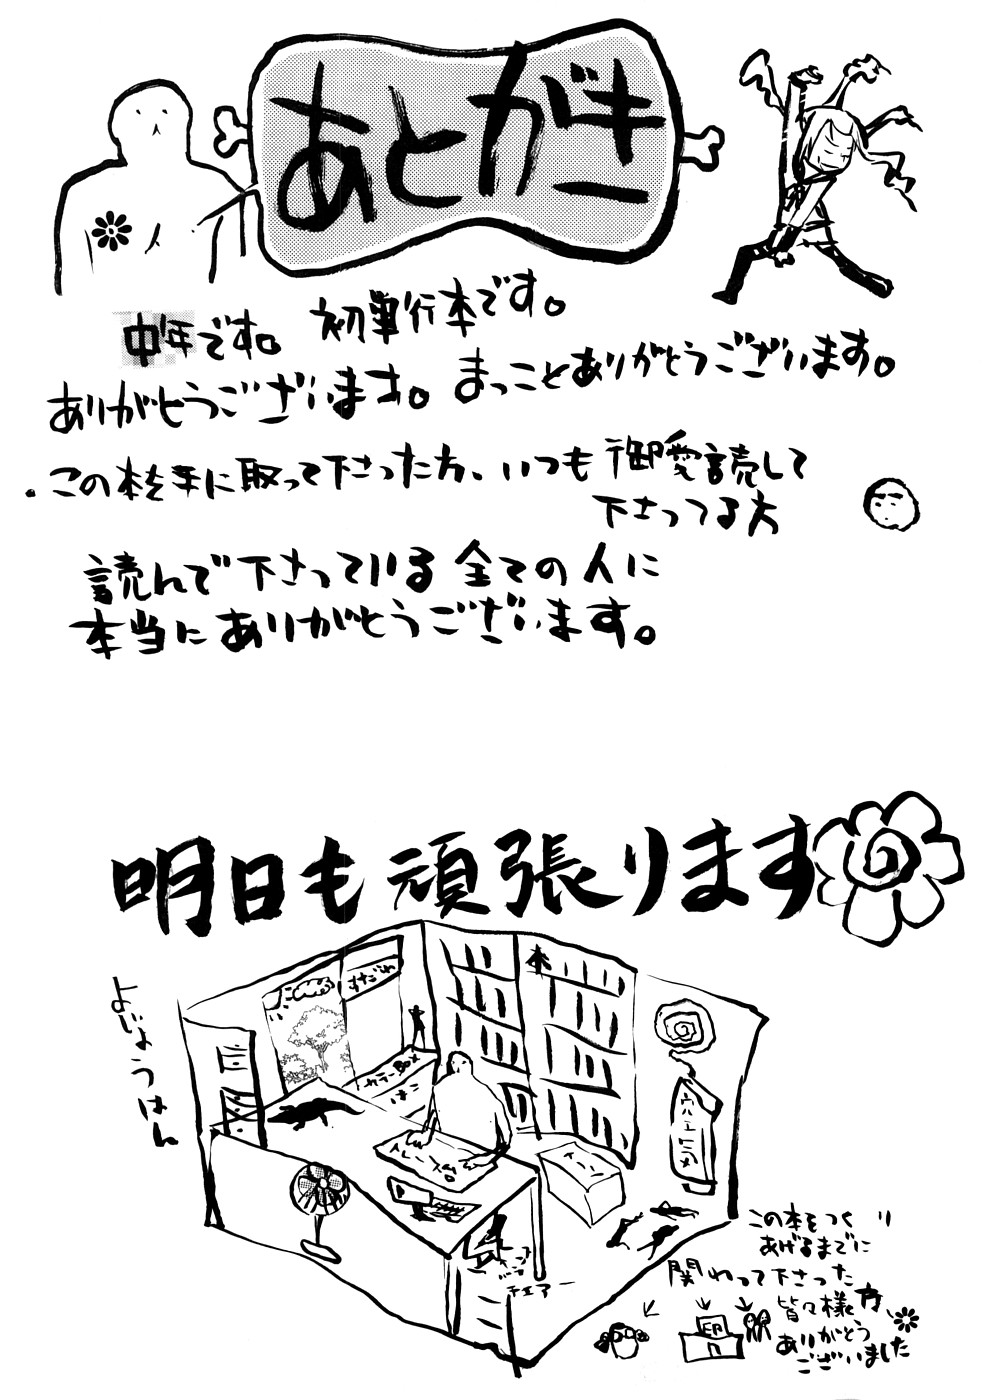 あとがき
中年です。 初単行本です。
ありがとうございます。 まっことありがとうございます。
この本を手に取って下さった方、いつも御愛読して
下さってる方
読んで下さっている全ての人に
本当にありがとうございます。
明日も頑張ります
よじょうはん
すだれ
カラーBox
トレース台
チェアー
この本をつくり
あげるまでに
関わって下さった
皆々様方
ありがとう
ございました